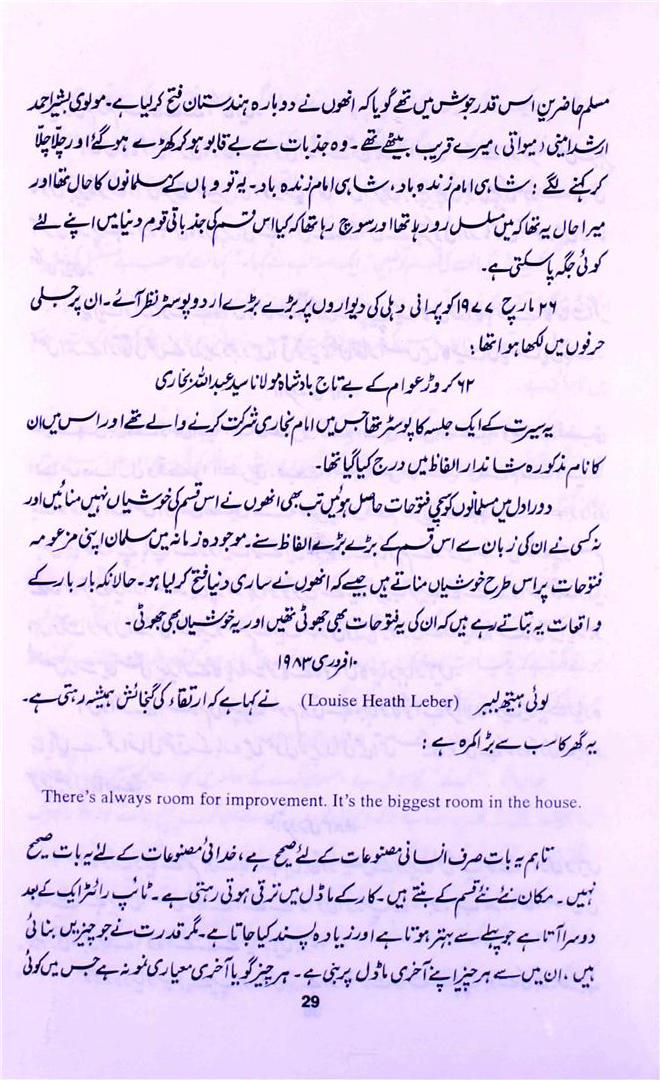 مسلم حاضرین اس قدر جوش میں تھے گویا کہ انھوں نے دوبارہ ہندستان فتح کر لیا ہے۔ مولوی بشیر احمد
ارشد امینی (میواتی) میرے قریب بیٹھے تھے۔ وہ جذبات سے بے قابو ہو کر کھڑے ہو گئے اور چلّا چلّا
کر کہنے لگے: شاہی امام زندہ باد، شاہی امام زندہ باد۔ یہ تو وہاں کے مسلمانوں کا حال تھا اور
میرا حال یہ تھا کہ میں مسلسل رو رہا تھا اور سوچ رہا تھا کہ کیا اس قسم کی جذباتی قوم دنیا میں اپنے لئے
کوئی جگہ پا سکتی ہے۔
۲۶ مارچ ۱۹۷۷ کو پرانی دہلی کی دیواروں پر بڑے بڑے اردو پوسٹر نظر آئے۔ ان پر جلی
حرفوں میں لکھا ہوا تھا:
۶۲ کروڑ عوام کے بے تاج بادشاہ مولانا سید عبداللہ بخاری
یہ سیرت کے ایک جلسہ کا پوسٹر تھا جس میں امام بخاری شرکت کرنے والے تھے اور اس میں ان
کا نام مذکورہ شاندار الفاظ میں درج کیا گیا تھا۔
دور اول میں مسلمانوں کو سچی فتوحات حاصل ہوئیں تب بھی انھوں نے اس قسم کی خوشیاں نہیں منائیں اور
نہ کسی نے ان کی زبان سے اس قسم کے بڑے بڑے الفاظ سنے۔ موجودہ زمانہ میں مسلمان اپنی مزعومہ
فتوحات پر اس طرح خوشیاں مناتے ہیں جیسے کہ انھوں نے ساری دنیا فتح کر لیا ہو۔ حالانکہ بار بار کے
واقعات یہ بتاتے رہے ہیں کہ ان کی یہ فتوحات بھی جھوٹی تھیں اور یہ خوشیاں بھی جھوٹی۔
۱۰ فروری ۱۹۸۳
لوئی ہیتھ لیبر (Louise Heath Leber) نے کہا ہے کہ ارتقاء کی گنجائش ہمیشہ رہتی ہے۔
یہ گھر کا سب سے بڑا کمرہ ہے:
There's always room for improvement. It's the biggest room in the house.
تاہم یہ بات صرف انسانی مصنوعات کے لئے صحیح ہے، خدائی مصنوعات کے لئے یہ بات صحیح
نہیں۔ مکان نئے نئے قسم کے بنتے ہیں۔ کار کے ماڈل میں ترقی ہوتی رہتی ہے۔ ٹائپ رائٹر ایک کے بعد
دوسرا آتا ہے جو پہلے سے بہتر ہوتا ہے اور زیادہ پسند کیا جاتا ہے۔ مگر قدرت نے جو چیزیں بنائی
ہیں، ان میں سے ہر چیز اپنے آخری ماڈل پر بنی ہے۔ ہر چیز گویا آخری معیاری نمونہ ہے جس میں کوئی
29